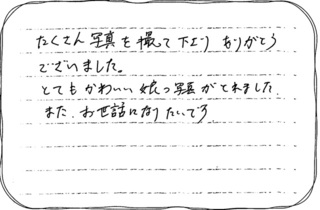 たくさん写真を撮って下さり ありがとう
ございました。
とてもかわいい娘の写真がとれました。
また、お世話になりたいです